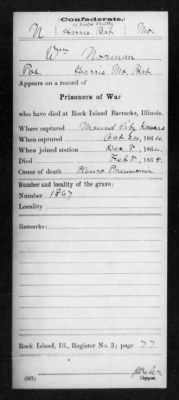 Confederate.
N | Harris Bat | Mo.
Wm Norman
Pvt. Harris Mo. Bat
Appears on a record of
Prisoners of War
who have died at Rock Island Barracks, Illinois.
Where captured Mound City Kansas
When captured Oct 24, 1864.
When joined station Dec 8, 1864.
Died Feb 8, 1865.
Cause of death Pleuro Pneumonia
Number and locality of the grave:
Number 1867
Locality
Remarks:
Rock Island, Ill., Register No. 3; page 77
Copyist.